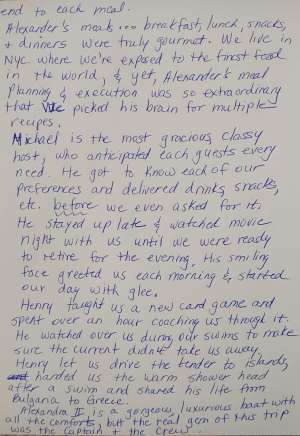 end to each meal.
Alexander's meals... breakfast, lunch, snacks,
+ dinners were truly gourmet. We live in
NYC where we're exposed to the finest food
in the world, & yet, Alexander's meal
planning & execution was so extraordinary
that We picked his brain for multiple
recipes.
Michael is the most gracious, classy
host, who anticipated each guests every
need. He got to know each of our
preferences and delivered drinks, snacks,
etc. before we even asked for it.
He stayed up late & watched movie
night with us until we were ready
to retire for the evening. His smiling
face greeted us each morning & started
our day with glee.
Henry taught us a new card game and
spent over an hour coaching us through it.
He watched over us during our swims to make
sure the current didn't take us away.
Henry let us drive the tender to islands,
and handed us the warm shower head
after a swim and shared his life from
Bulgaria to Greece.
Alexandra II is a gorgeous, luxurious boat with
all the comforts, but the real gem of this trip
was the Captain + the Crew.